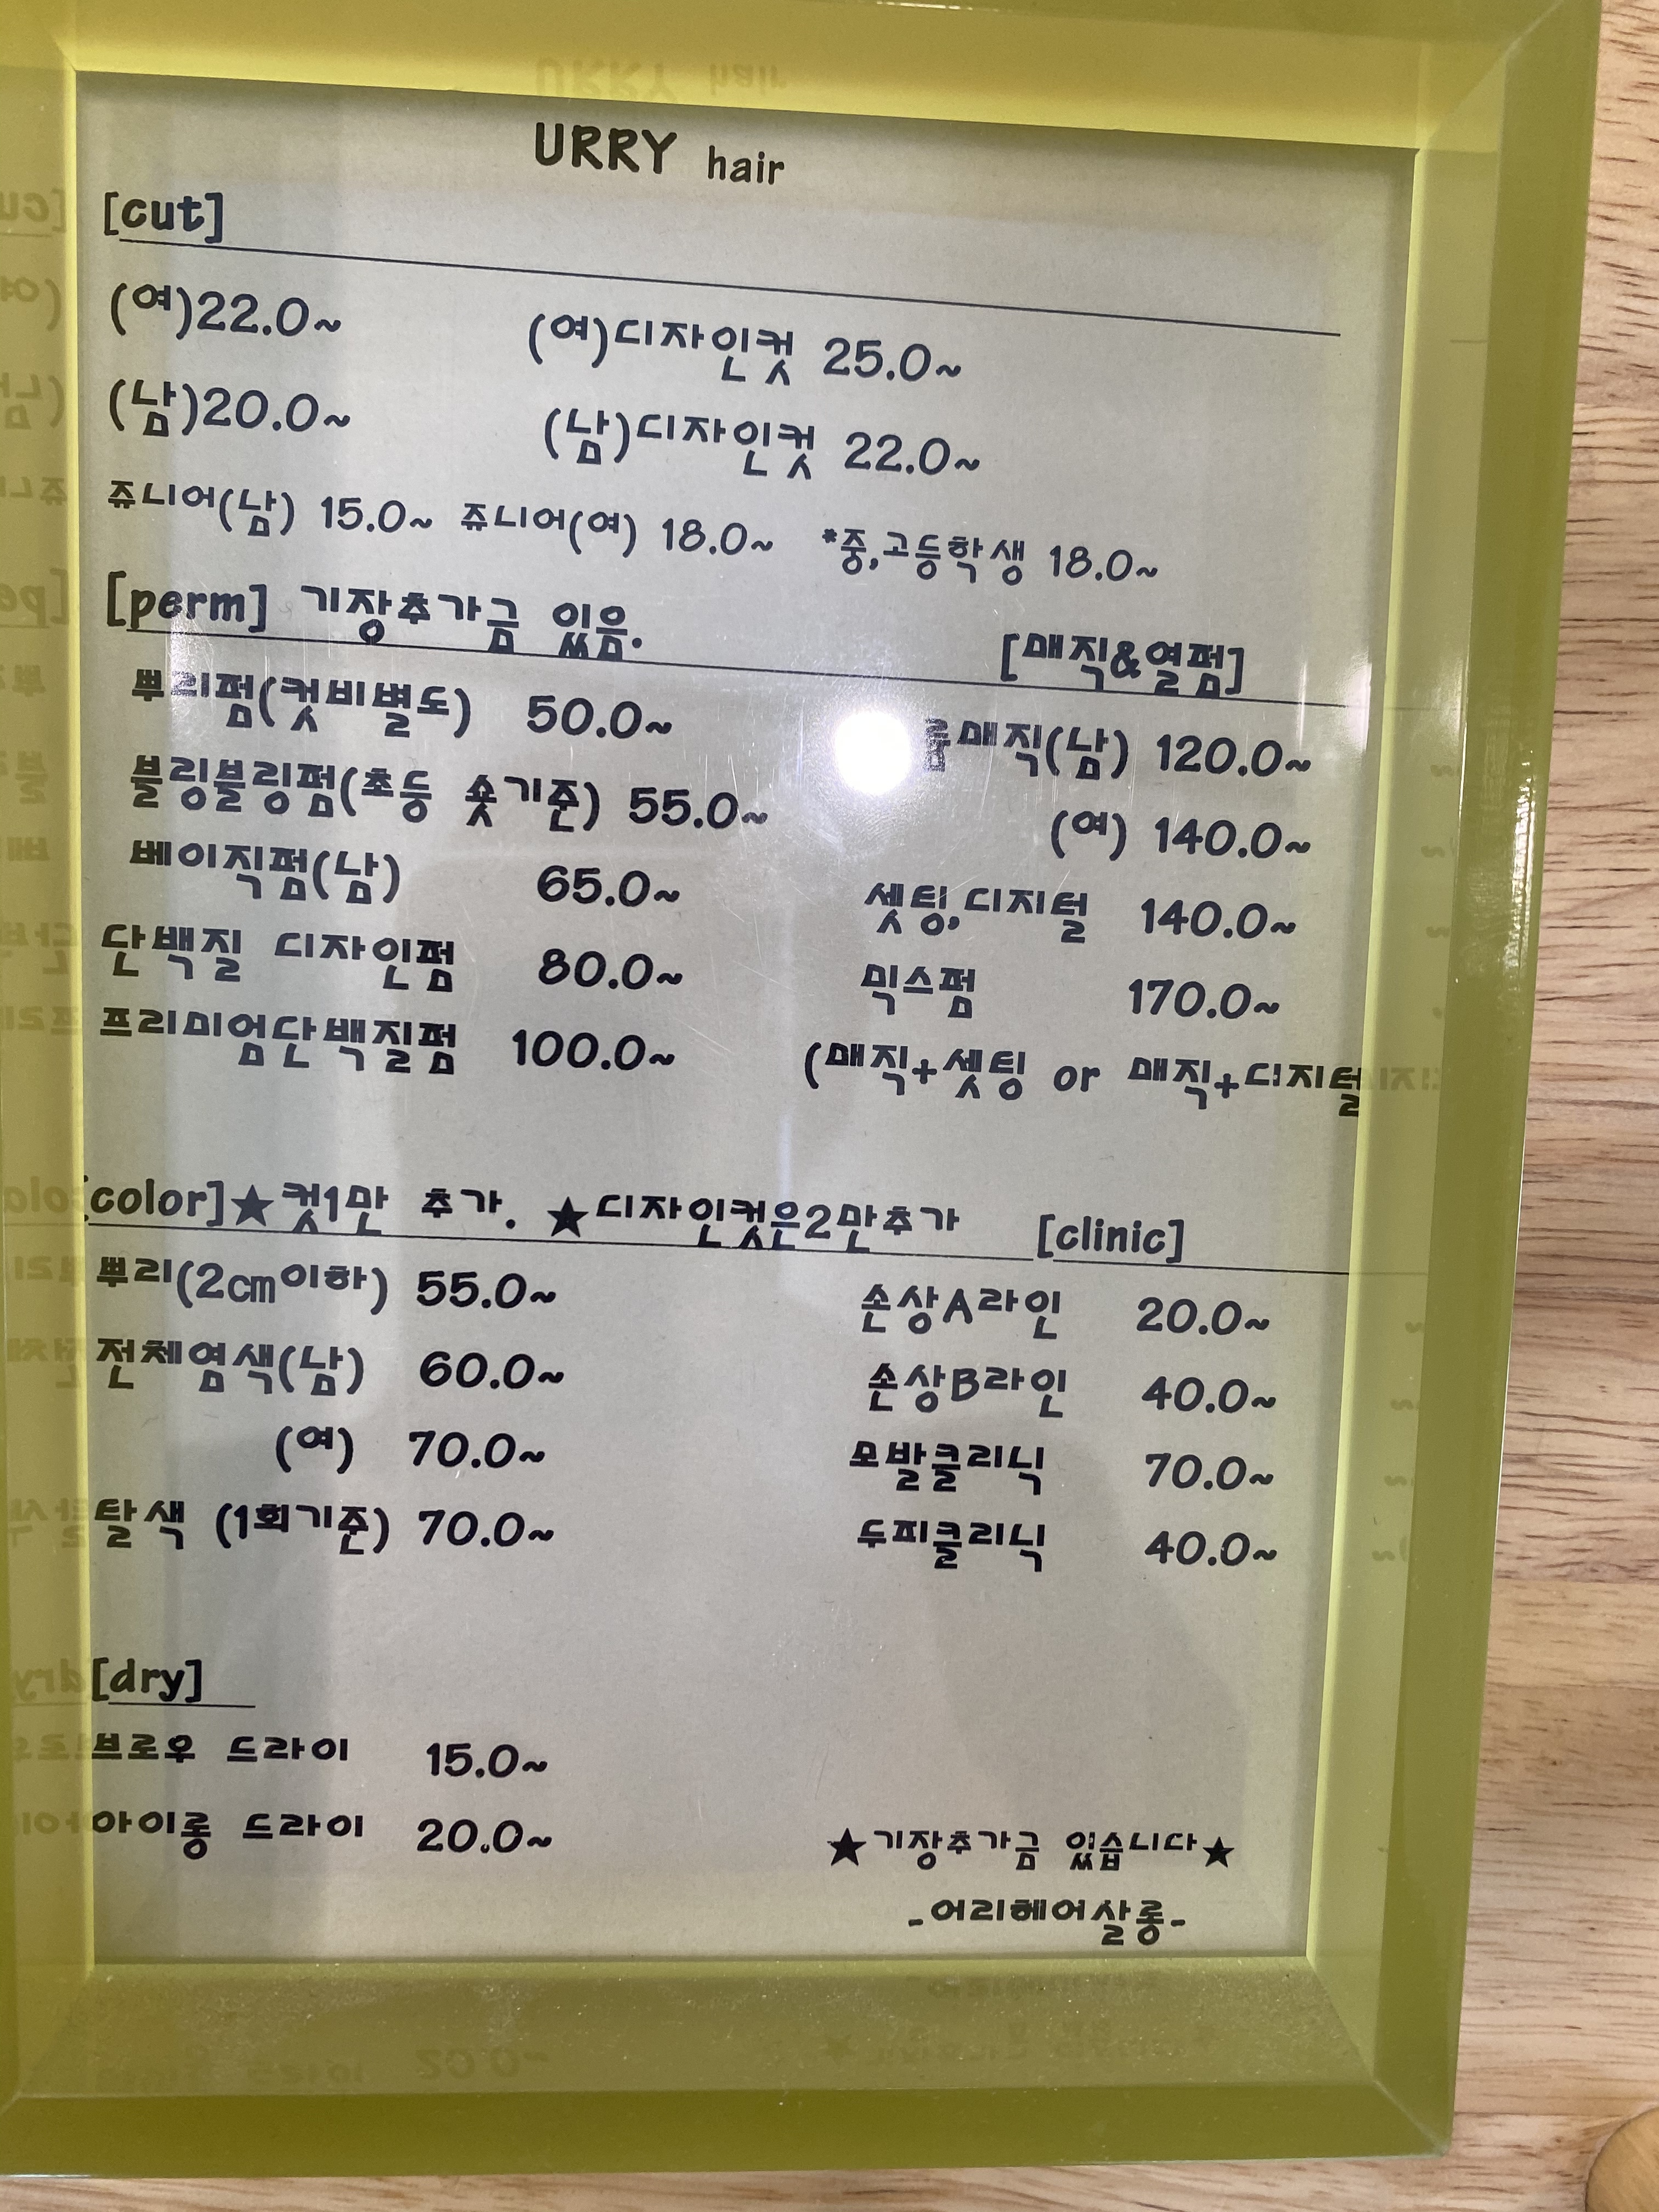 URRY hair
[cut]
(여)22.0~ (여)디자인컷 25.0~
(남)20.0~ (남)디자인컷 22.0~
쥬니어(남) 15.0~ 쥬니어(여) 18.0~ *중,고등학생 18.0~
[perm] 기장추가금 있음. [매직&열펌]
뿌리펌(컷비별도) 50.0~
블링블링펌(초등 숏기준) 55.0~
베이직펌(남) 65.0~
단백질 디자인펌 80.0~
프리미엄단백질펌 100.0~
120.0~
(여) 140.0~
셋팅,디지털 140.0~
믹스펌 170.0~
(매직+셋팅 or 매직+디지털
[color]★컷1만 추가. ★디자인컷은2만추가 [clinic]
뿌리(2cm이하) 55.0~
전체염색(남) 60.0~
(여) 70.0~
탈색 (1회기준) 70.0~
손상A라인 20.0~
손상B라인 40.0~
모발클리닉 70.0~
두피클리닉 40.0~
[dry]
브로우 드라이 15.0~
아이롱 드라이 20.0~
★기장추가금 있습니다★
-어리헤어살롱-